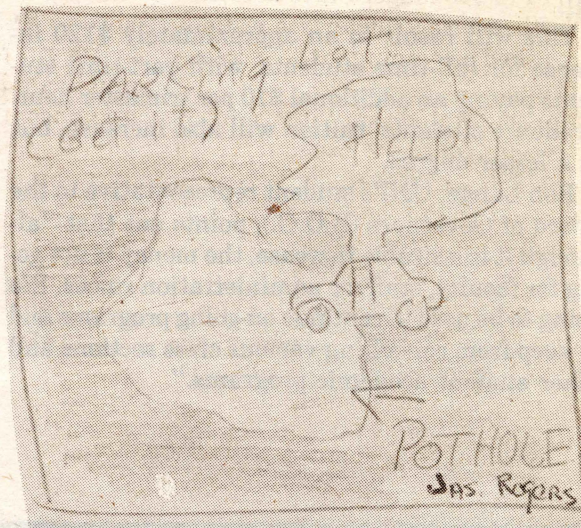 PARKING LOT.
(GET IT)
HELP!
POTHOLE
JAS. ROGERS